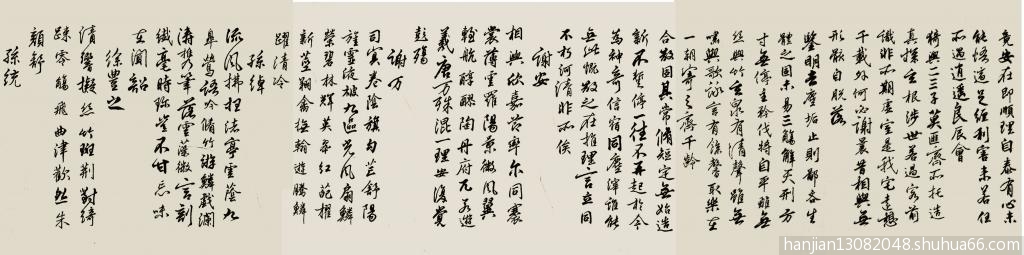 竟安在即順理自泰有心未
能悟適足纏利害未若任
所遇逍遙良辰會
猗與二三子莫匪齊所託造
真探玄根涉世若過客前
識非所期虛室是我宅遠想
千載外何必謝曩昔相與無
形骸自脫落
鑒明去塵垢止則鄙吝生
體之固未易三觴解天刑方
寸無停主矜伐將自平雖無
絲與竹玄泉有清聲雖無
嘯與歌詠言有餘馨取樂在
一朝寄之齊千齡
合散固其常脩短定無始造
新不暫停一往不再起於今
為神奇信宿同塵滓誰能
無此慨散之在推理言立同
不朽河清非所俟
謝安
相與欣嘉節率爾同褰
裳薄雲羅陽景微風翼
輕航醇醪陶丹府兀若遊
羲唐萬殊混一理安復覺
彭殤
謝万
司冥卷陰旗句芒舒陽
旌靈液被九區光風扇鮮
榮碧林輝英翠紅葩擢
新莖翔禽撫翰遊騰鱗
躍清泠
孫綽
流風拂枉渚亭雲蔭九
皋鶯語吟脩竹游鱗戲瀾
濤攜筆落雲藻微言剖
纖毫時珍豈不甘忘味
在聞韶
徐豐之
清響擬絲竹班荊對綺
疎零觴飛曲津歡然朱
顏舒
孫統
hanjian13082048.shuhua66.com